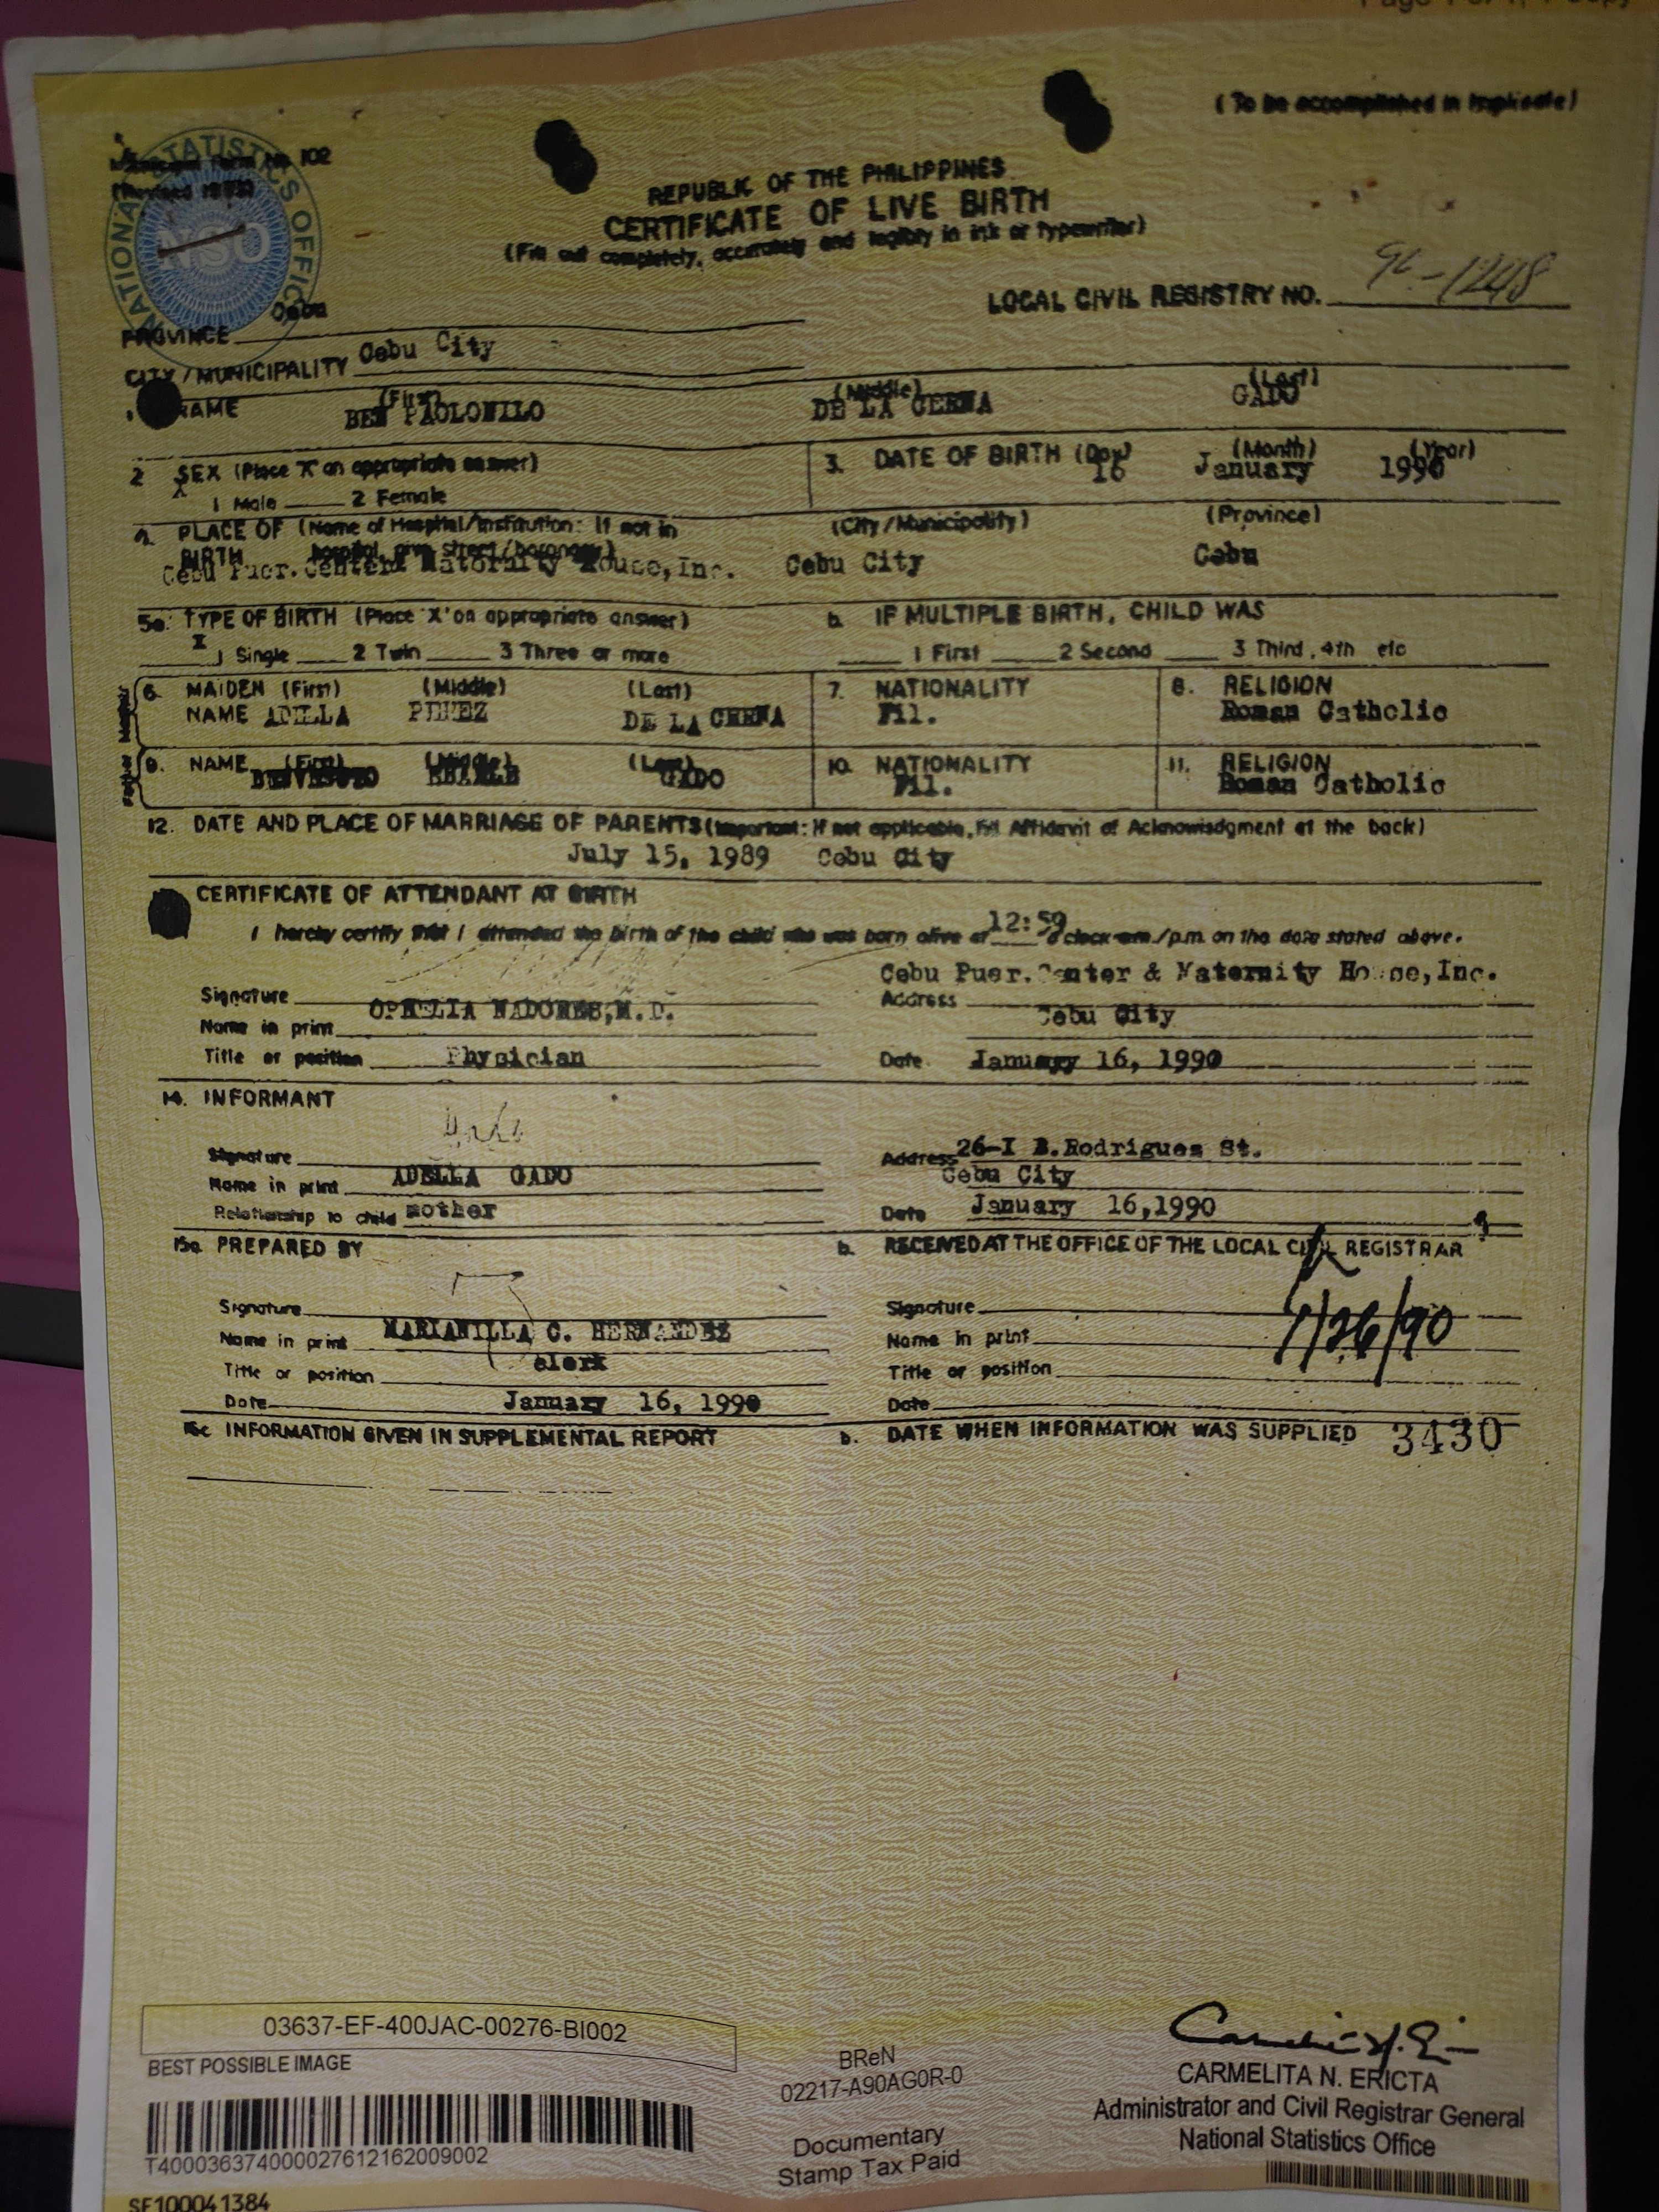 (To be accomplished in triplicate)
Form No. 102
NATIONAL STATISTICS OFFICE
NSO
REPUBLIC OF THE PHILIPPINES
CERTIFICATE OF LIVE BIRTH
(Fill out completely, accurately and legibly in ink or typewriter)
LOCAL CIVIL REGISTRY NO.
PROVINCE Cebu
CITY/MUNICIPALITY Cebu City
NAME (First) BEN PAOLONILO (Middle) DE LA CERNA (Last) GADO
2 SEX (Place 'X' on appropriate answer)
X 1 Male 2 Female
3. DATE OF BIRTH (Day) 16 (Month) January (Year) 1990
4. PLACE OF BIRTH (Name of Hospital/Institution: If not in hospital, give street/barangay) (City/Municipality) (Province)
Cebu Puer. Center & Maternity House, Inc. Cebu City Cebu
5a. TYPE OF BIRTH (Place 'X' on appropriate answer)
X 1 Single 2 Twin 3 Three or more
b. IF MULTIPLE BIRTH, CHILD WAS
1 First 2 Second 3 Third, 4th etc
Mother
6. MAIDEN NAME (First) (Middle) (Last) DE LA CERNA
7. NATIONALITY Fil.
8. RELIGION Roman Catholic
Father
9. NAME (First) (Middle) (Last) GADO
10. NATIONALITY Fil.
11. RELIGION Roman Catholic
12. DATE AND PLACE OF MARRIAGE OF PARENTS (Important: If not applicable, Fill Affidavit of Acknowledgment at the back)
July 15, 1989 Cebu City
CERTIFICATE OF ATTENDANT AT BIRTH
I hereby certify that I attended the birth of the child who was born alive at 12:59 o'clock am./p.m. on the date stated above.
Signature
Name in print OPHELIA M.D.
Title or position Physician
Cebu Puer. Center & Maternity House, Inc.
Address Cebu City
Date January 16, 1990
14. INFORMANT
Signature
Name in print ADELLA GADO
Relationship to child mother
Address 26-I B. Rodriguez St.
Cebu City
Date January 16, 1990
15a. PREPARED BY
Signature
Name in print MARIANILLA C. HERNANDEZ
Title or position clerk
Date January 16, 1990
b. RECEIVED AT THE OFFICE OF THE LOCAL CIVIL REGISTRAR
Signature
Name in print
Title or position
Date
/26/90
16a INFORMATION GIVEN IN SUPPLEMENTAL REPORT
b. DATE WHEN INFORMATION WAS SUPPLIED 3430
03637-EF-400JAC-00276-BI002
BEST POSSIBLE IMAGE
T400036374000027612162009002
SF100041384
BReN
02217-A90AG0R-0
Documentary
Stamp Tax Paid
CARMELITA N. ERICTA
Administrator and Civil Registrar General
National Statistics Office